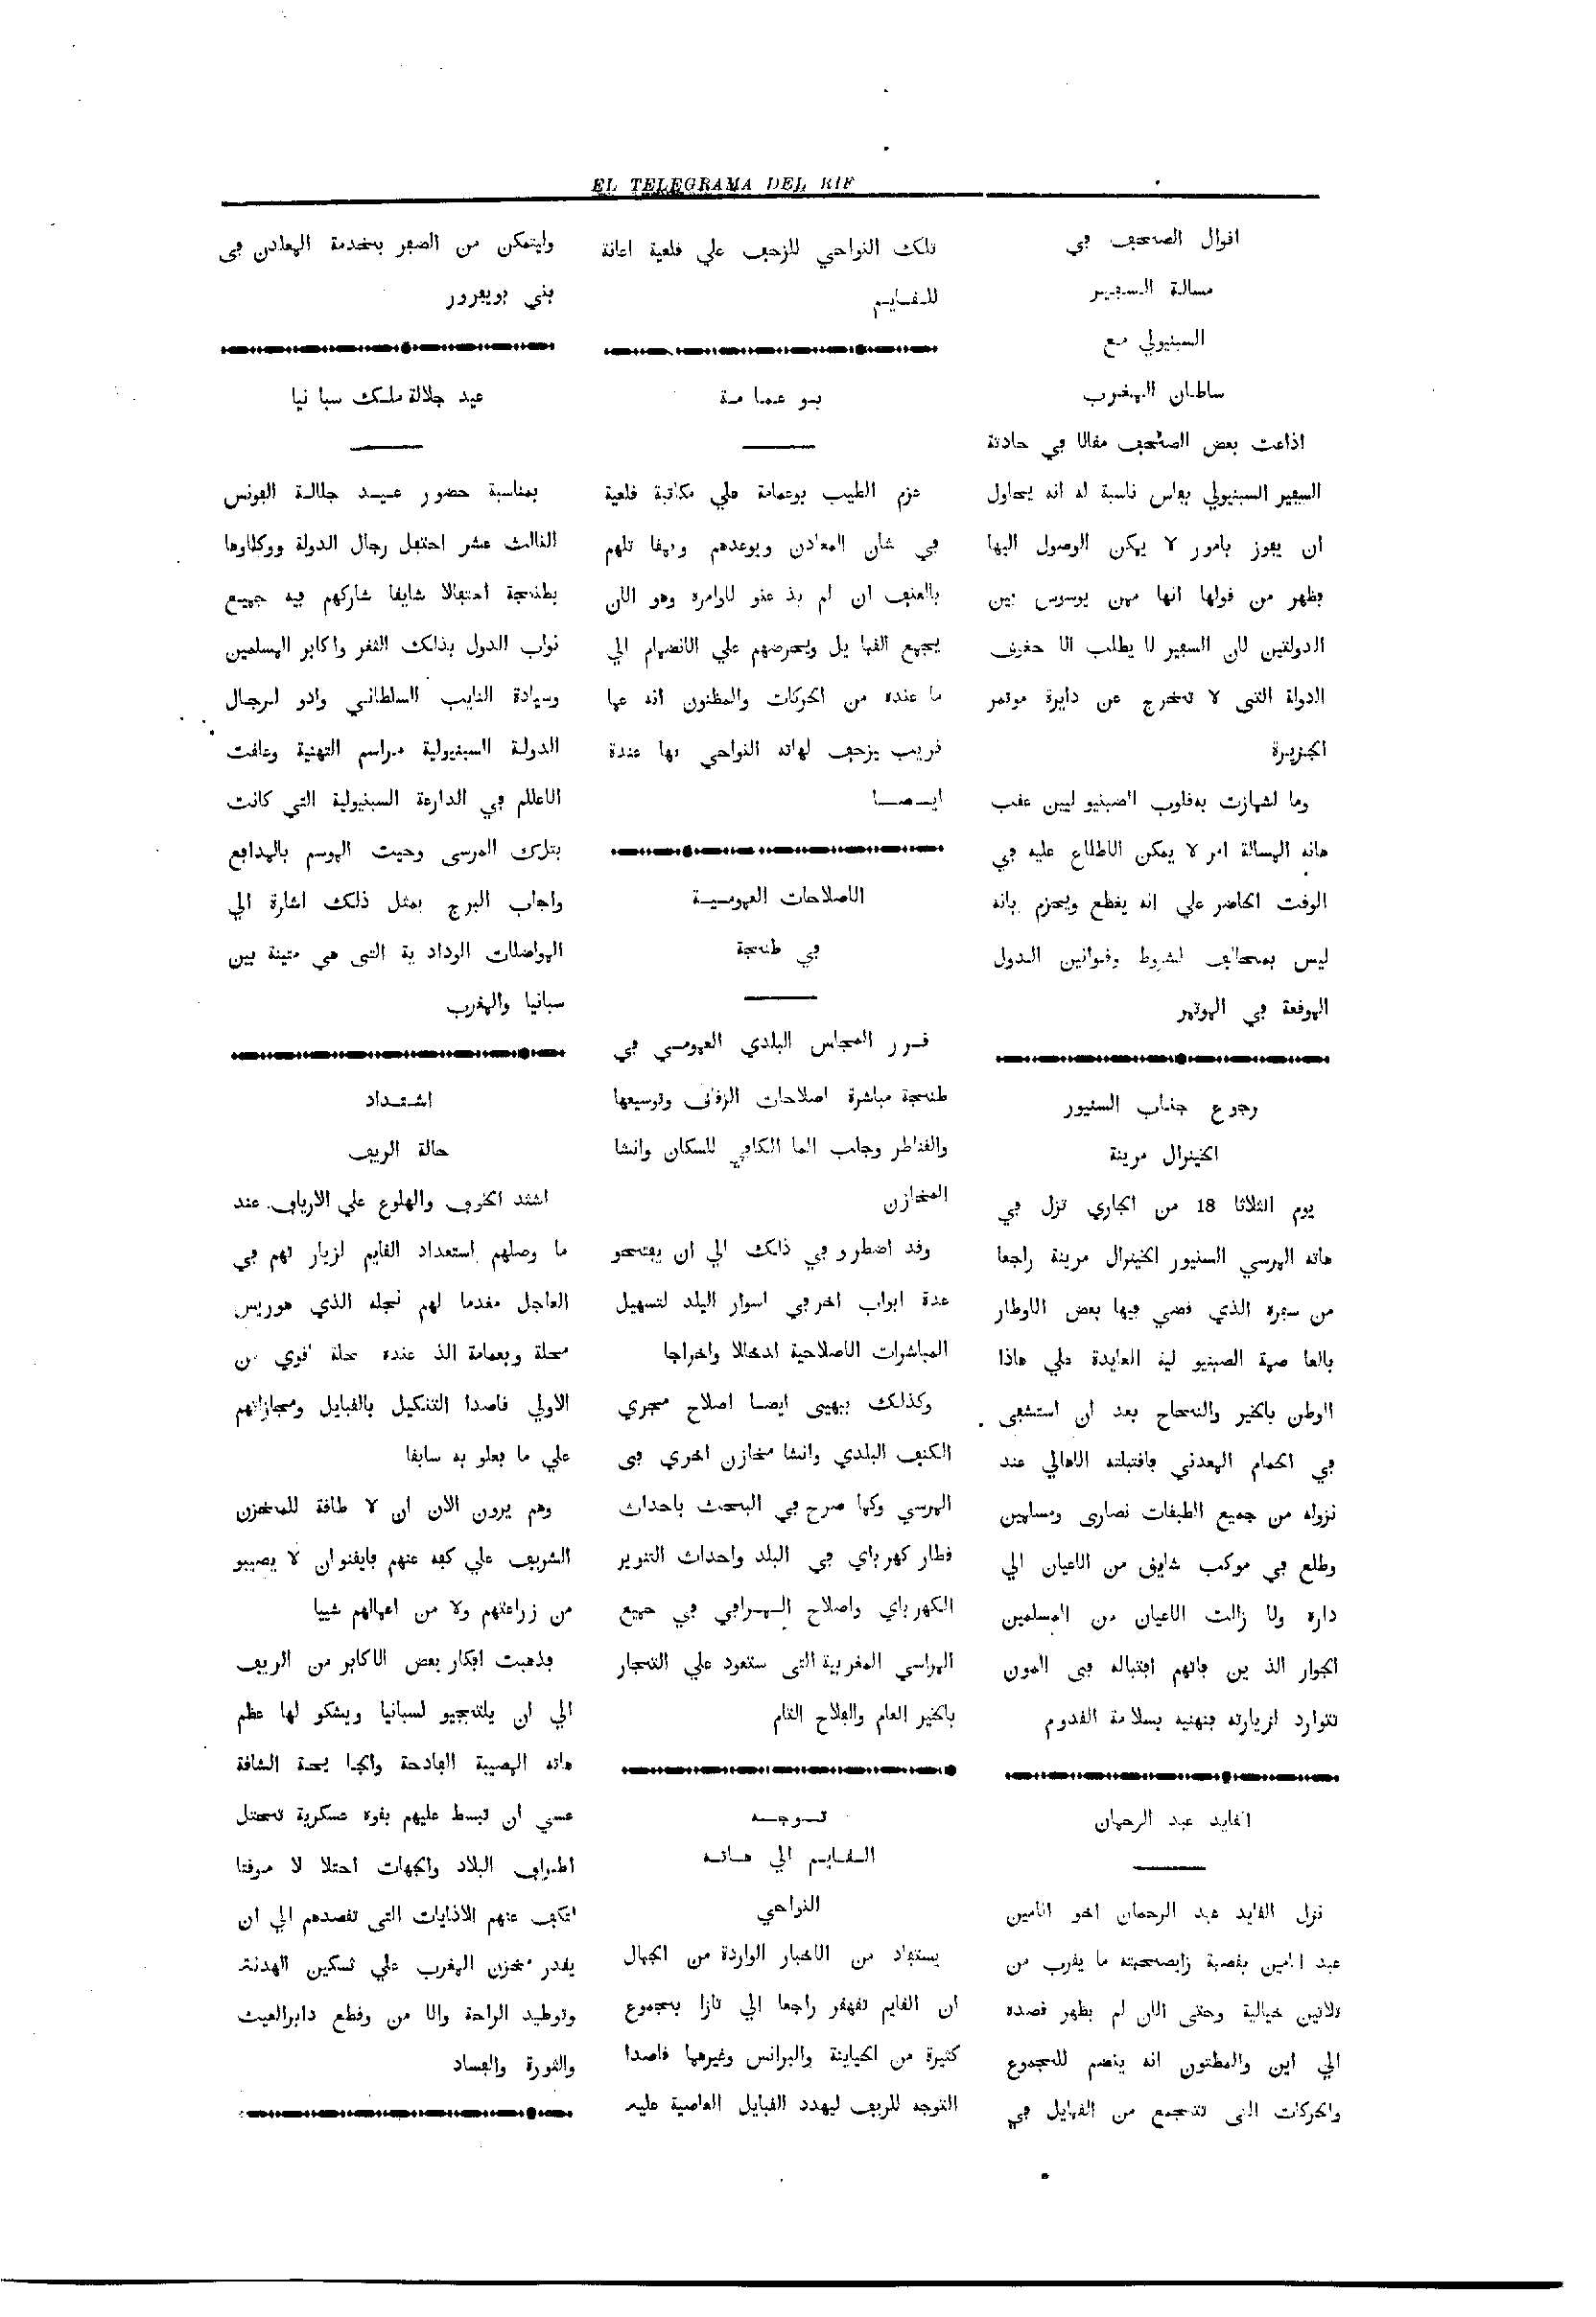 EL TELEGRAMA DEL RIF
افوال الصحف في
مسالة السفير
السبنيولي مع
سلطان المغرب
اذاعت بعض الصحف مفالا في حادثة
السفير السبنيولي بفاس ناسبة له انه يحاول
ان يفوز بامور لا يمكن الوصول اليها
يظهر من فولها انها ممن يوسوس بين
الدولتين لان السفير لا يطلب الا حفوف
الدولة التي لا تخرج عن دايرة موتمر
الجزيرة
وما لشمازت به فلوب الصبنيو ليين عفب
هاته المسالة امر لا يمكن الاطلاع عليه في
الوفت الحاضر علي انه يفطع ويجزم بانه
ليس بمخالف لشروط وفوانين الدول
الموفعة في الموتمر
رجوع جناب السنيور
الخينرال مرينة
يوم الثلاثا 18 من الجاري نزل في
هاته المرسي السنيور الخينرال مرينة راجعا
من سفرة الذي فضي فيها بعض الاوطار
بالعا صمة الصبنيو لية العايدة علي هاذا
الوطن بالخير والنجاح بعد ان استشفى
في الحمام المعدني فافتبلته الاهالي عند
نزوله من جميع الطبفات نصارى ومسلمين
وطلع في موكب شايف من الاعيان الي
دارة ولا زالت الاعيان من المسلمين
الجوار الذ ين فاتهم افتباله في المون
تتوارد لزيارته بتهنيه بسلامة الفدوم
الفايد عبد الرحمان
نزل الفايد عبد الرحمان اخو الامين
عبد الامين بفصبة زايصحبته ما يفرب من
ثلاثين خيالية وحتى الان لم يظهر فصده
الي اين والمظنون انه ينضم للجموع
والحركات التي تتجمع من الفبايل في
تلك النواحي للزحف علي فلعية اعانة
للفايم
بو عما مة
عزم الطيب بوعمامة علي مكاتبة فلعية
في شان المعادن ويوعدهم وبهفا تلهم
بالعنف ان لم يذ عنو لاوامره وهو الان
يجمع الفبا يل ويحرضهم علي الانضمام الي
ما عنده من الحركات والمظنون انه عما
فريب يزحف لهاته النواحي بما عندة
ايضا
الاصلاحات العمومية
في طنجة
فرر المجلس البلدي العمومي في
طنجة مباشرة اصلاحات الزفاف وتوسيعها
والفناطر وجلب الما الكافي للسكان وانشا
المخازن
وفد اضطرو في ذالك الي ان يفتحو
عدة ابواب اخر في اسوار البلد لتسهيل
المباشرات الاصلاحية ادخالا واخراجا
وكذلك بيهيى ايضا اصلاح مجري
الكنف البلدي وانشا مخازن اخري في
المرسي وكما صرح في البحث باحداث
فطار كهرباي في البلد واحداث التنوير
الكهرباي واصلاح المرافي في جميع
المراسي المغربية التي ستعود علي التجار
بالخير العام والفلاح التام
توجه
الفايم الي هاته
النواحي
يستفاد من الاخبار الواردة من الجمال
ان الفايم تفهفر راجعا الي تازا بجموع
كثيرة من الحياينة والبرانس وغيرهما فاصدا
التوجه للريف ليهدد الفبايل العاصية عليه
وليتمكن من الصفر بخدمة المعادن في
بني بويفرور
عيد جلالة ملك سبا نيا
بمناسبة حضور عيد جلالة الفونس
الثالث عشر احتفل رجال الدولة ووكلاوها
بطنجة احتفالا شايفا شاركهم فيه جميع
نواب الدول بذلك الثغر واكابر المسلمين
وسيادة النايب السلطاني وادو لرجال
الدولة السبنيولية مراسم التهنية وعلفت
الاعلام في الدارعة السبنيولية التي كانت
بتلك المرسى وحيت الموسم بالمدافع
واجاب البرج بمثل ذلك اشارة الي
المواصلات الوداد ية التي هي متينة بين
سبانيا والمغرب
اشتداد
حالة الريف
اشتد الخوف والهلوع علي الارياف عند
ما وصلهم استعداد الفايم لزيار تهم في
العاجل مفدما لهم نجله الذي هوريس
محلة وبعمامة الذ عنده محلة افوي من
الاولي فاصدا التنكيل بالفبايل ومجازاتهم
علي ما فعلو به سابفا
وهم يرون الان ان لا طافة للمخزن
الشريف علي كفه عنهم فايفنوان لا يصيبو
من زراعتهم ولا من اعمالهم شييا
فذهبت افكار بعض الاكابر من الريف
الي ان يلتجيو لسبانيا ويشكو لها عظم
هاته المصيبة الفادحة والجا يحة الشافة
عسي ان تبسط عليهم بفوة عسكرية تحتل
اطراف البلاد والجهات احتلا لا موفتا
لتكف عنهم الاذايات التي تفصدهم الي ان
يفدر مخزن المغرب علي تسكين الهدنة
وتوطيد الراحة والا من وفطع دابرالعيث
والثورة والفساد